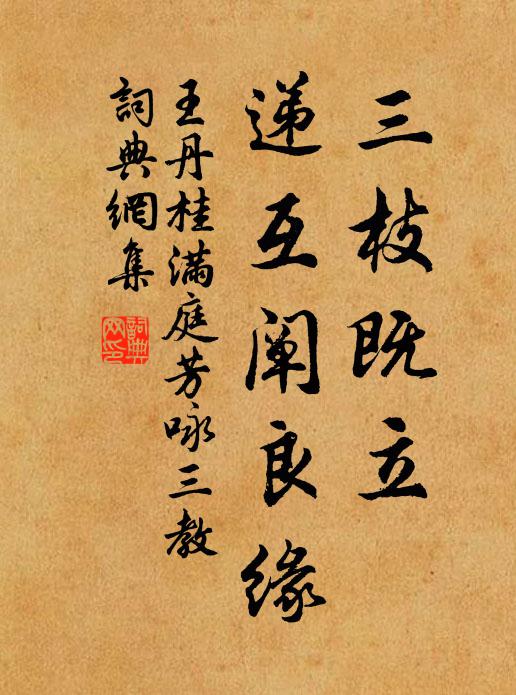 三枝既立
递互阐良缘
王丹桂满庭芳咏三教
詞典網集
詞典网印